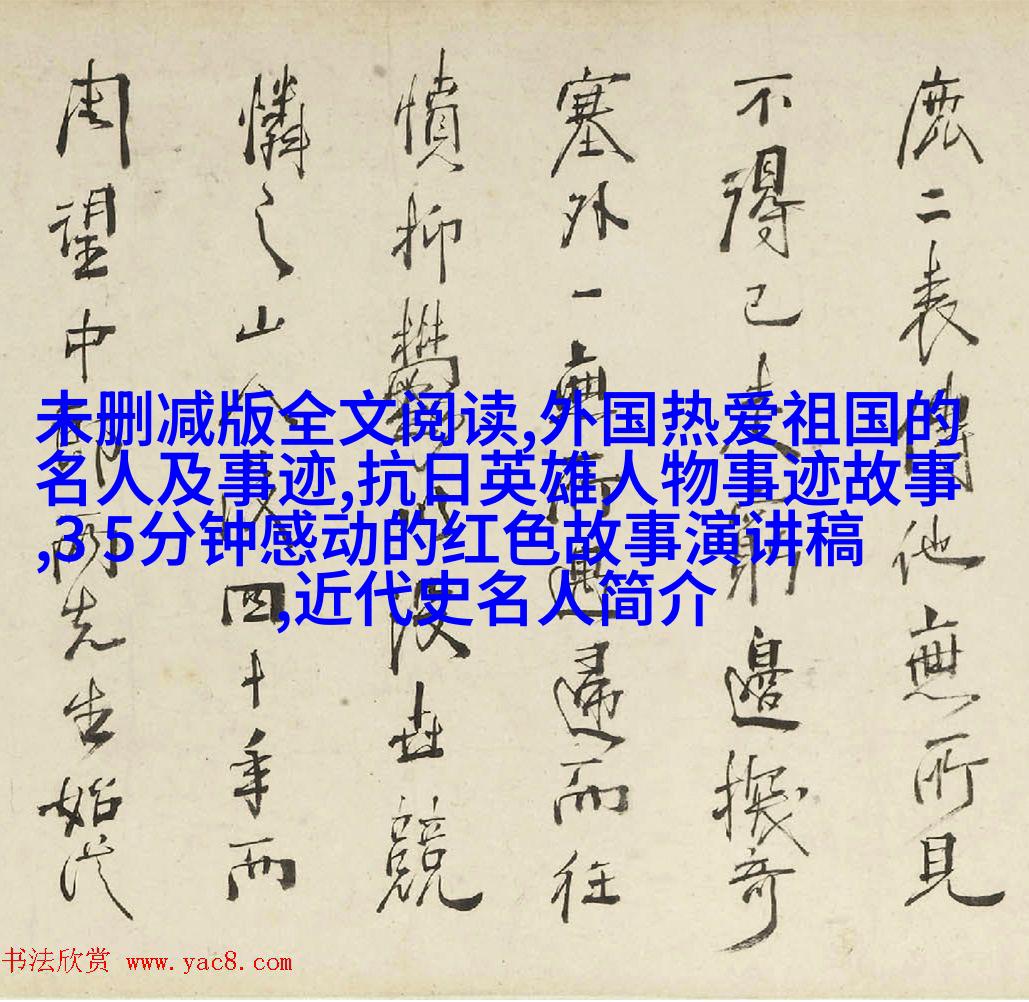 二表傳他無所見
不得已走窮邊
奇
塞外一無所遇歸而往
憤抑鬱以沒世競
憐之山人歿四十年而
周望中郎兩先生始從
未删减版全文阅读,外国热爱祖国的
名人及事迹,抗日英雄人物事迹故事
,3 5分钟感动的红色故事演讲稿
,近代史名人简介
书法欣赏 www.yac8.com